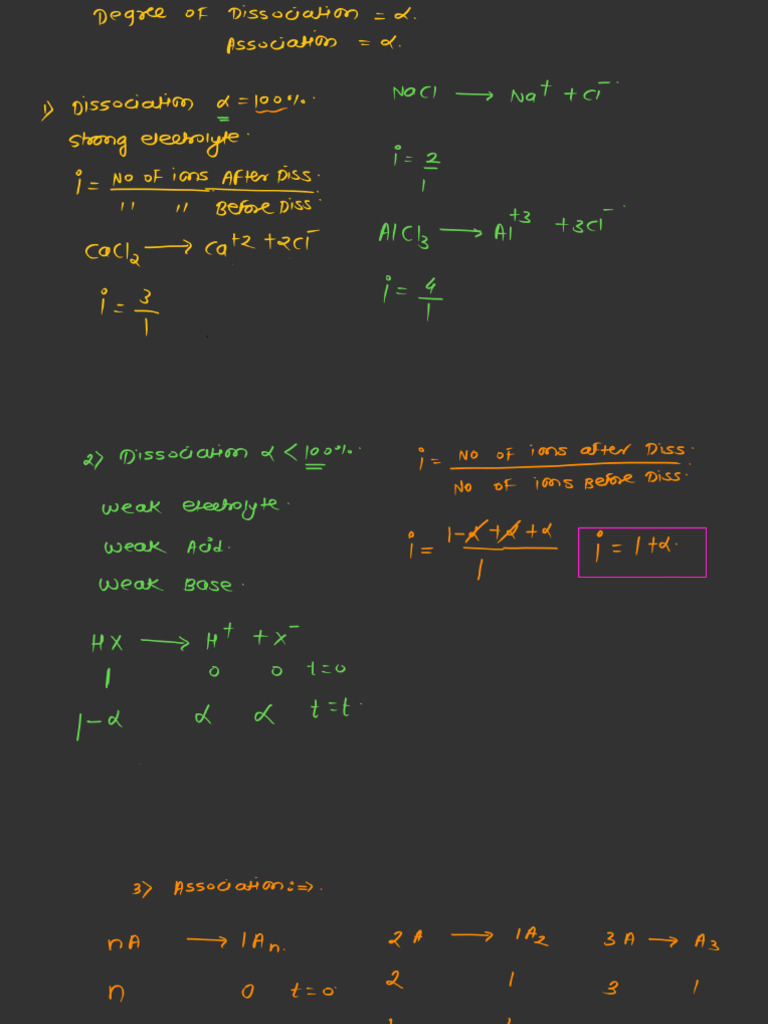 Degree of Dissociation = α.
Association = α.
1) Dissociation α = 100%.
strong electrolyte.
i = No of ions After Diss.
" " Before Diss.
CaCl₂ → Ca⁺² + 2Cl⁻
i = 3
1
NaCl → Na⁺ + Cl⁻
i = 2
1
AlCl₃ → Al⁺³ + 3Cl⁻
i = 4
1
2) Dissociation α < 100%.
weak electrolyte.
weak Acid.
weak Base.
HX → H⁺ + X⁻
1 0 0 t=0
1-α α α t=t.
i = No of ions after Diss.
No of ions Before Diss.
i = 1-α+α+α
1
i = 1+α.
3) Association :⇒.
nA → 1An.
n 0 t=0
2A → 1A₂
2 1
3A → A₃
3 1